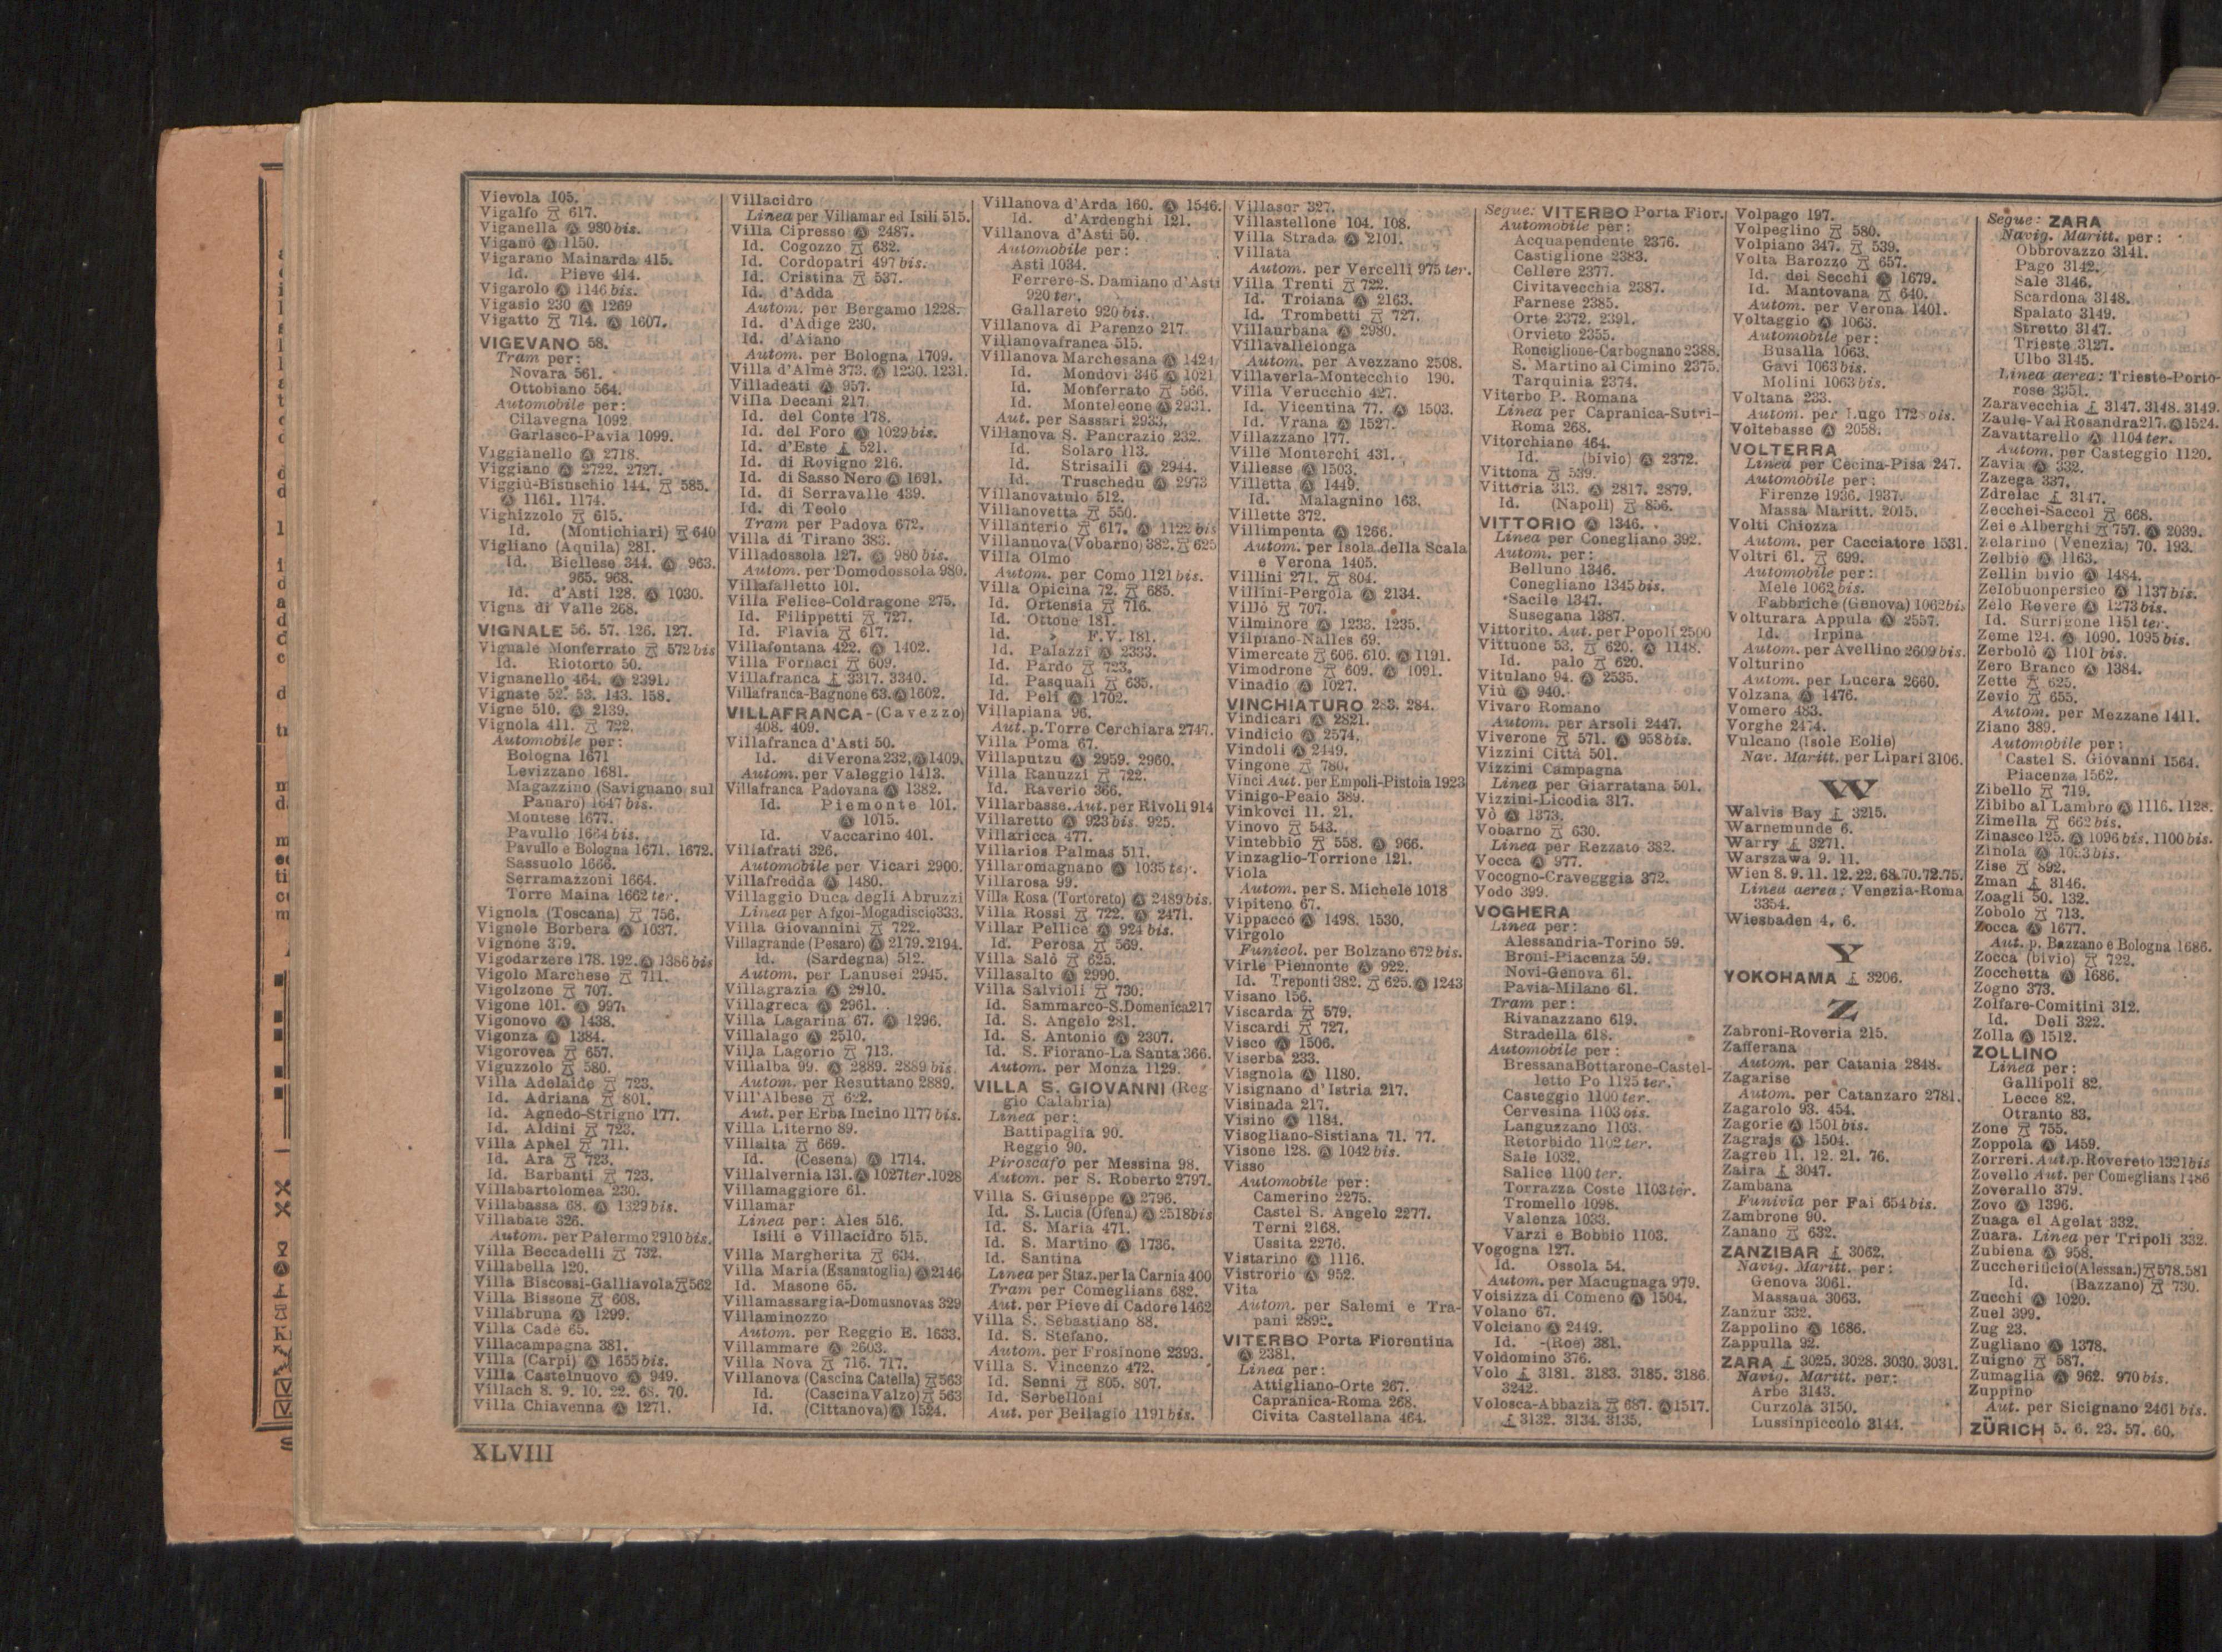 Vievola 105.
Vigalfo 617.
Viganella Ⓐ 980 bis.
Viganò Ⓐ 1150.
Vigarano Mainarda 415.
Id. Pieve 414.
Vigarolo Ⓐ 1146 bis.
Vigasio 230 Ⓐ 1269
Vigatto 714. Ⓐ 1607.
VIGEVANO 58.
Tram per:
Novara 561.
Ottobiano 564.
Automobile per:
Cilavegna 1092.
Garlasco-Pavia 1099.
Viggianello Ⓐ 2718.
Viggiano Ⓐ 2722. 2727.
Viggiù-Bisuschio 144. 585.
Ⓐ 1161. 1174.
Vighizzolo 615.
Id. (Montichiari) 640
Vigliano (Aquila) 281.
Id. Biellese 344. Ⓐ 963.
965. 968.
Id. d'Asti 128. Ⓐ 1030.
Vigna di Valle 268.
VIGNALE 56. 57. 126. 127.
Vignale Monferrato 572 bis
Id. Riotorto 50.
Vignanello 464. Ⓐ 2391.
Vignate 52. 53. 143. 158.
Vigne 510. Ⓐ 2139.
Vignola 411. 722.
Automobile per:
Bologna 1671
Levizzano 1681.
Magazzino (Savignano sul
Panaro) 1647 bis.
Montese 1677.
Pavullo 1664 bis.
Pavullo e Bologna 1671. 1672.
Sassuolo 1666.
Serramazzoni 1664.
Torre Maina 1662 ter.
Vignola (Toscana) 756.
Vignole Borbera Ⓐ 1037.
Vignone 379.
Vigodarzere 178. 192. Ⓐ 1386 bis
Vigolo Marchese 711.
Vigolzone 707.
Vigone 101. Ⓐ 997.
Vigonovo Ⓐ 1438.
Vigonza Ⓐ 1384.
Vigorovea 657.
Viguzzolo 580.
Villa Adelaide 723.
Id. Adriana 801.
Id. Agnedo-Strigno 177.
Id. Aldini 723.
Villa Aphel 711.
Id. Ara 723.
Id. Barbanti 723.
Villabartolomea 230.
Villabassa 68. Ⓐ 1329 bis.
Villabate 326.
Autom. per Palermo 2910 bis.
Villa Beccadelli 732.
Villabella 120.
Villa Biscossi-Galliavola 562
Villa Bissone 608.
Villabruna Ⓐ 1299.
Villa Cadè 65.
Villacampagna 381.
Villa (Carpi) Ⓐ 1655 bis.
Villa Castelnuovo Ⓐ 949.
Villach 8. 9. 10. 22. 68. 70.
Villa Chiavenna Ⓐ 1271.
Villacidro
Linea per Villamar ed Isili 515.
Villa Cipresso Ⓐ 2487.
Id. Cogozzo 632.
Id. Cordopatri 497 bis.
Id. Cristina 537.
Id. d'Adda
Autom. per Bergamo 1228.
Id. d'Adige 230.
Id. d'Aiano
Autom. per Bologna 1709.
Villa d'Almè 373. Ⓐ 1230. 1231.
Villadeati Ⓐ 957.
Villa Decani 217.
Id. del Conte 178.
Id. del Foro Ⓐ 1029 bis.
Id. d'Este 521.
Id. di Rovigno 216.
Id. di Sasso Nero Ⓐ 1691.
Id. di Serravalle 439.
Id. di Teolo
Tram per Padova 672.
Villa di Tirano 383.
Villadossola 127. Ⓐ 980 bis.
Autom. per Domodossola 980.
Villafalletto 101.
Villa Felice-Coldragone 275.
Id. Filippetti 727.
Id. Flavia 617.
Villafontana 422. Ⓐ 1402.
Villa Fornaci 609.
Villafranca 3317. 3340.
Villafranca-Bagnone 63. Ⓐ 1602.
VILLAFRANCA-(Cavezzo)
408. 409.
Villafranca d'Asti 50.
Id. di Verona 232. Ⓐ 1409.
Autom. per Valeggio 1413.
Villafranca Padovana Ⓐ 1382.
Id. Piemonte 101.
Ⓐ 1015.
Id. Vaccarino 401.
Villafrati 326.
Automobile per Vicari 2900.
Villafredda Ⓐ 1480.
Villaggio Duca degli Abruzzi
Linea per Afgoi-Mogadiscio 333.
Villa Giovannini 722.
Villagrande (Pesaro) Ⓐ 2179. 2194.
Id. (Sardegna) 512.
Autom. per Lanusei 2945.
Villagrazia Ⓐ 2910.
Villagreca Ⓐ 2961.
Villa Lagarina 67. Ⓐ 1296.
Villalago Ⓐ 2510.
Villa Lagorio 713.
Villalba 99. Ⓐ 2889. 2889 bis.
Autom. per Resuttano 2889.
Vill'Albese 622.
Aut. per Erba Incino 1177 bis.
Villa Literno 89.
Villalta 669.
Id. (Cesena) Ⓐ 1714.
Villalvernia 131. Ⓐ 1027 ter. 1028
Villamaggiore 61.
Villamar
Linea per: Ales 516.
Isili e Villacidro 515.
Villa Margherita 634.
Villa Maria (Esanatoglia) Ⓐ 2146
Id. Masone 65.
Villamassargia-Domusnovas 329
Villaminozzo
Autom. per Reggio E. 1633.
Villammare Ⓐ 2603.
Villa Nova 716. 717.
Villanova (Cascina Catella) 563
Id. (Cascina Valzo) 563
Id. (Cittanova) Ⓐ 1524.
Villanova d'Arda 160. Ⓐ 1546.
Id. d'Ardenghi 121.
Villanova d'Asti 50.
Automobile per:
Asti 1034.
Ferrere-S. Damiano d'Asti
920 ter.
Gallareto 920 bis.
Villanova di Parenzo 217.
Villanovafranca 515.
Villanova Marchesana Ⓐ 1424
Id. Mondovì 346 Ⓐ 1021
Id. Monferrato 566.
Id. Monteleone Ⓐ 2931.
Aut. per Sassari 2933.
Villanova S. Pancrazio 232.
Id. Solaro 113.
Id. Strisaili Ⓐ 2944.
Id. Truschedu Ⓐ 2973
Villanovatulo 512.
Villanovetta 550.
Villanterio 617. Ⓐ 1122 bis
Villanuova (Vobarno) 382. 625
Villa Olmo
Autom. per Como 1121 bis.
Villa Opicina 72. 685.
Id. Ortensia 716.
Id. Ottone 181.
Id. » F.V. 181.
Id. Palazzi Ⓐ 2333.
Id. Pardo 723.
Id. Pasquali 635.
Id. Peli Ⓐ 1702.
Villapiana 96.
Aut. p. Torre Cerchiara 2747.
Villa Poma 67.
Villaputzu Ⓐ 2959. 2960.
Villa Ranuzzi 722.
Id. Raverio 366.
Villarbasse. Aut. per Rivoli 914
Villaretto Ⓐ 923 bis. 925.
Villaricca 477.
Villarios Palmas 511.
Villaromagnano Ⓐ 1035 ter.
Villarosa 99.
Villa Rosa (Tortoreto) Ⓐ 2489 bis.
Villa Rossi 722. Ⓐ 2471.
Villar Pellice Ⓐ 924 bis.
Id. Perosa 569.
Villa Salò 625.
Villasalto Ⓐ 2990.
Villa Salvioli 730.
Id. Sammarco-S. Domenica 217
Id. S. Angelo 281.
Id. S. Antonio Ⓐ 2307.
Id. S. Fiorano-La Santa 366.
Autom. per Monza 1129.
VILLA S. GIOVANNI (Reg-
gio Calabria)
Linea per:
Battipaglia 90.
Reggio 90.
Piroscafo per Messina 98.
Autom. per S. Roberto 2797.
Villa S. Giuseppe Ⓐ 2796.
Id. S. Lucia (Ofena) Ⓐ 2518 bis
Id. S. Maria 471.
Id. S. Martino Ⓐ 1736.
Id. Santina
Linea per Staz. per la Carnia 400
Tram per Comeglians 682.
Aut. per Pieve di Cadore 1462
Villa S. Sebastiano 88.
Id. S. Stefano.
Autom. per Frosinone 2393.
Villa S. Vincenzo 472.
Id. Senni 805. 807.
Id. Serbelloni
Aut. per Bellagio 1191 bis.
Villasor 327.
Villastellone 104. 108.
Villa Strada Ⓐ 2101.
Villata
Autom. per Vercelli 975 ter.
Villa Trenti 722.
Id. Troiana Ⓐ 2163.
Id. Trombetti 727.
Villaurbana Ⓐ 2980.
Villavallelonga
Autom. per Avezzano 2508.
Villaverla-Montecchio 190.
Villa Verucchio 427.
Id. Vicentina 77. Ⓐ 1503.
Id. Vrana Ⓐ 1527.
Villazzano 177.
Ville Monterchi 431.
Villesse Ⓐ 1503.
Villetta Ⓐ 1449.
Id. Malagnino 163.
Villette 372.
Villimpenta Ⓐ 1266.
Autom. per Isola della Scala
e Verona 1405.
Villini 271. 804.
Villini-Pergola Ⓐ 2134.
Villò 707.
Vilminore Ⓐ 1233. 1235.
Vilpiano-Nalles 69.
Vimercate 606. 610. Ⓐ 1191.
Vimodrone 609. Ⓐ 1091.
Vinadio Ⓐ 1027.
VINCHIATURO 283. 284.
Vindicari Ⓐ 2821.
Vindicio Ⓐ 2574.
Vindoli Ⓐ 2449.
Vingone 780.
Vinci Aut. per Empoli-Pistoia 1923
Vinigo-Peaio 389.
Vinkovci 11. 21.
Vinovo 543.
Vintebbio 558. Ⓐ 966.
Vinzaglio-Torrione 121.
Viola
Autom. per S. Michele 1018
Vipiteno 67.
Vippacco Ⓐ 1498. 1530.
Virgolo
Funicol. per Bolzano 672 bis.
Virle Piemonte Ⓐ 922.
Id. Treponti 382. 625. Ⓐ 1243
Visano 156.
Viscarda 579.
Viscardi 727.
Visco Ⓐ 1506.
Viserba 233.
Visgnola Ⓐ 1180.
Visignano d'Istria 217.
Visinada 217.
Visino Ⓐ 1184.
Visogliano-Sistiana 71. 77.
Visone 128. Ⓐ 1042 bis.
Visso
Automobile per:
Camerino 2275.
Castel S. Angelo 2277.
Terni 2168.
Ussita 2276.
Vistarino Ⓐ 1116.
Vistrorio Ⓐ 952.
Vita
Autom. per Salemi e Tra-
pani 2892.
VITERBO Porta Fiorentina
Ⓐ 2381.
Linea per:
Attigliano-Orte 267.
Capranica-Roma 268.
Civita Castellana 464.
Segue: VITERBO Porta Fior.
Automobile per:
Acquapendente 2376.
Castiglione 2383.
Cellere 2377.
Civitavecchia 2387.
Farnese 2385.
Orte 2372. 2391.
Orvieto 2355.
Ronciglione-Carbognano 2388.
S. Martino al Cimino 2375.
Tarquinia 2374.
Viterbo P. Romana
Linea per Capranica-Sutri-
Roma 268.
Vitorchiano 464.
Id. (bivio) Ⓐ 2372.
Vittona 539.
Vittoria 313. Ⓐ 2817. 2879.
Id. (Napoli) 856.
VITTORIO Ⓐ 1346.
Linea per Conegliano 392.
Autom. per:
Belluno 1346.
Conegliano 1345 bis.
Sacile 1347.
Susegana 1387.
Vittorito. Aut. per Popoli 2500
Vittuone 53. 620. Ⓐ 1148.
Id. palo 620.
Vitulano 94. Ⓐ 2535.
Viù Ⓐ 940.
Vivaro Romano
Autom. per Arsoli 2447.
Viverone 571. Ⓐ 958 bis.
Vizzini Città 501.
Vizzini Campagna
Linea per Giarratana 501.
Vizzini-Licodia 317.
Vò Ⓐ 1373.
Vobarno 630.
Linea per Rezzato 382.
Vocca Ⓐ 977.
Vocogno-Craveggia 372.
Vodo 399.
VOGHERA
Linea per:
Alessandria-Torino 59.
Broni-Piacenza 59.
Novi-Genova 61.
Pavia-Milano 61.
Tram per:
Rivanazzano 619.
Stradella 618.
Automobile per:
Bressana Bottarone-Castel-
letto Po 1125 ter.
Casteggio 1100 ter.
Cervesina 1103 bis.
Languzzano 1103.
Retorbido 1102 ter.
Sale 1032.
Salice 1100 ter.
Torrazza Coste 1103 ter.
Tromello 1098.
Valenza 1033.
Varzi e Bobbio 1103.
Vogogna 127.
Id. Ossola 54.
Autom. per Macugnaga 979.
Voisizza di Comeno Ⓐ 1504.
Volano 67.
Volciano Ⓐ 2449.
Id. -(Roè) 381.
Voldomino 376.
Volo 3181. 3183. 3185. 3186.
3242.
Volosca-Abbazia 687. Ⓐ 1517.
3132. 3134. 3135.
Volpago 197.
Volpeglino 580.
Volpiano 347. 539.
Volta Barozzo 657.
Id. dei Secchi Ⓐ 1679.
Id. Mantovana 640.
Autom. per Verona 1401.
Voltaggio Ⓐ 1063.
Automobile per:
Busalla 1063.
Gavi 1063 bis.
Molini 1063 bis.
Voltana 233.
Autom. per Lugo 1728 bis.
Voltebasse Ⓐ 2058.
VOLTERRA
Linea per Cecina-Pisa 247.
Automobile per:
Firenze 1936. 1937.
Massa Maritt. 2015.
Volti Chiozza
Autom. per Cacciatore 1531.
Voltri 61. 699.
Automobile per:
Mele 1062 bis.
Fabbriche (Genova) 1062 bis
Volturara Appula Ⓐ 2557.
Id. Irpina
Autom. per Avellino 2609 bis.
Volturino
Autom. per Lucera 2660.
Volzana Ⓐ 1476.
Vomero 483.
Vorghe 2474.
Vulcano (Isole Eolie)
Nav. Maritt. per Lipari 3106.
W
Walvis Bay 3215.
Warnemunde 6.
Warry 3271.
Warszawa 9. 11.
Wien 8. 9. 11. 12. 22. 68. 70. 72. 75.
Linea aerea: Venezia-Roma
3354.
Wiesbaden 4. 6.
Y
YOKOHAMA 3206.
Z
Zabroni-Roveria 215.
Zafferana
Autom. per Catania 2848.
Zagarise
Autom. per Catanzaro 2781.
Zagarolo 93. 454.
Zagorie Ⓐ 1501 bis.
Zagrajs Ⓐ 1504.
Zagreb 11. 12. 21. 76.
Zaira 3047.
Zambana
Funivia per Fai 654 bis.
Zambrone 90.
Zanano 632.
ZANZIBAR 3062.
Navig. Maritt. per:
Genova 3061.
Massaua 3063.
Zanzur 332.
Zappolino Ⓐ 1686.
Zappulla 92.
ZARA 3025. 3028. 3030. 3031.
Navig. Maritt. per:
Arbe 3143.
Curzola 3150.
Lussinpiccolo 3144.
Segue: ZARA
Navig. Maritt. per:
Obbrovazzo 3141.
Pago 3142.
Sale 3146.
Scardona 3148.
Spalato 3149.
Stretto 3147.
Trieste 3127.
Ulbo 3145.
Linea aerea: Trieste-Porto-
rose 3351.
Zaravecchia 3147. 3148. 3149.
Zaule-Val Rosandra 217. Ⓐ 1524.
Zavattarello Ⓐ 1104 ter.
Autom. per Casteggio 1120.
Zavia Ⓐ 332.
Zazega 337.
Zdrelac 3147.
Zecchei-Saccol 668.
Zei e Alberghi 757. Ⓐ 2039.
Zelarino (Venezia) 70. 193.
Zelbio Ⓐ 1163.
Zellin bivio Ⓐ 1484.
Zelobuonpersico Ⓐ 1137 bis.
Zelo Revere Ⓐ 1273 bis.
Id. Surrigone 1151 ter.
Zeme 124. Ⓐ 1090. 1095 bis.
Zerbolò Ⓐ 1101 bis.
Zero Branco Ⓐ 1384.
Zette 625.
Zevio 655.
Autom. per Mezzane 1411.
Ziano 389.
Automobile per:
Castel S. Giovanni 1564.
Piacenza 1562.
Zibello 719.
Zibibo al Lambro Ⓐ 1116. 1128.
Zimella 662 bis.
Zinasco 125. Ⓐ 1096 bis. 1100 bis.
Zinola Ⓐ
Zise 892.
Zman 3146.
Zoagli 50. 132.
Zobolo 713.
Zocca Ⓐ 1677.
Aut. p. Bazzano e Bologna 1686.
Zocca (bivio) 722.
Zocchetta Ⓐ 1686.
Zogno 373.
Zolfare-Comitini 312.
Id. Deli 322.
Zolla Ⓐ 1512.
ZOLLINO
Linea per:
Gallipoli 82.
Lecce 82.
Otranto 83.
Zone 755.
Zoppola Ⓐ 1459.
Zorreri. Aut. p. Rovereto 1321 bis
Zovello Aut. per Comeglians 1486
Zoverallo 379.
Zovo Ⓐ 1396.
Zuaga el Agelat 332.
Zuara. Linea per Tripoli 332.
Zubiena Ⓐ 958.
Zuccherificio (Alessan.) 578. 581
Id. (Bazzano) 730.
Zucchi Ⓐ 1020.
Zuel 399.
Zug 23.
Zugliano Ⓐ 1378.
Zuigno 587.
Zumaglia Ⓐ 962. 970 bis.
Zuppino
Aut. per Sicignano 2461 bis.
ZÜRICH 5. 6. 23. 57. 60.
XLVIII